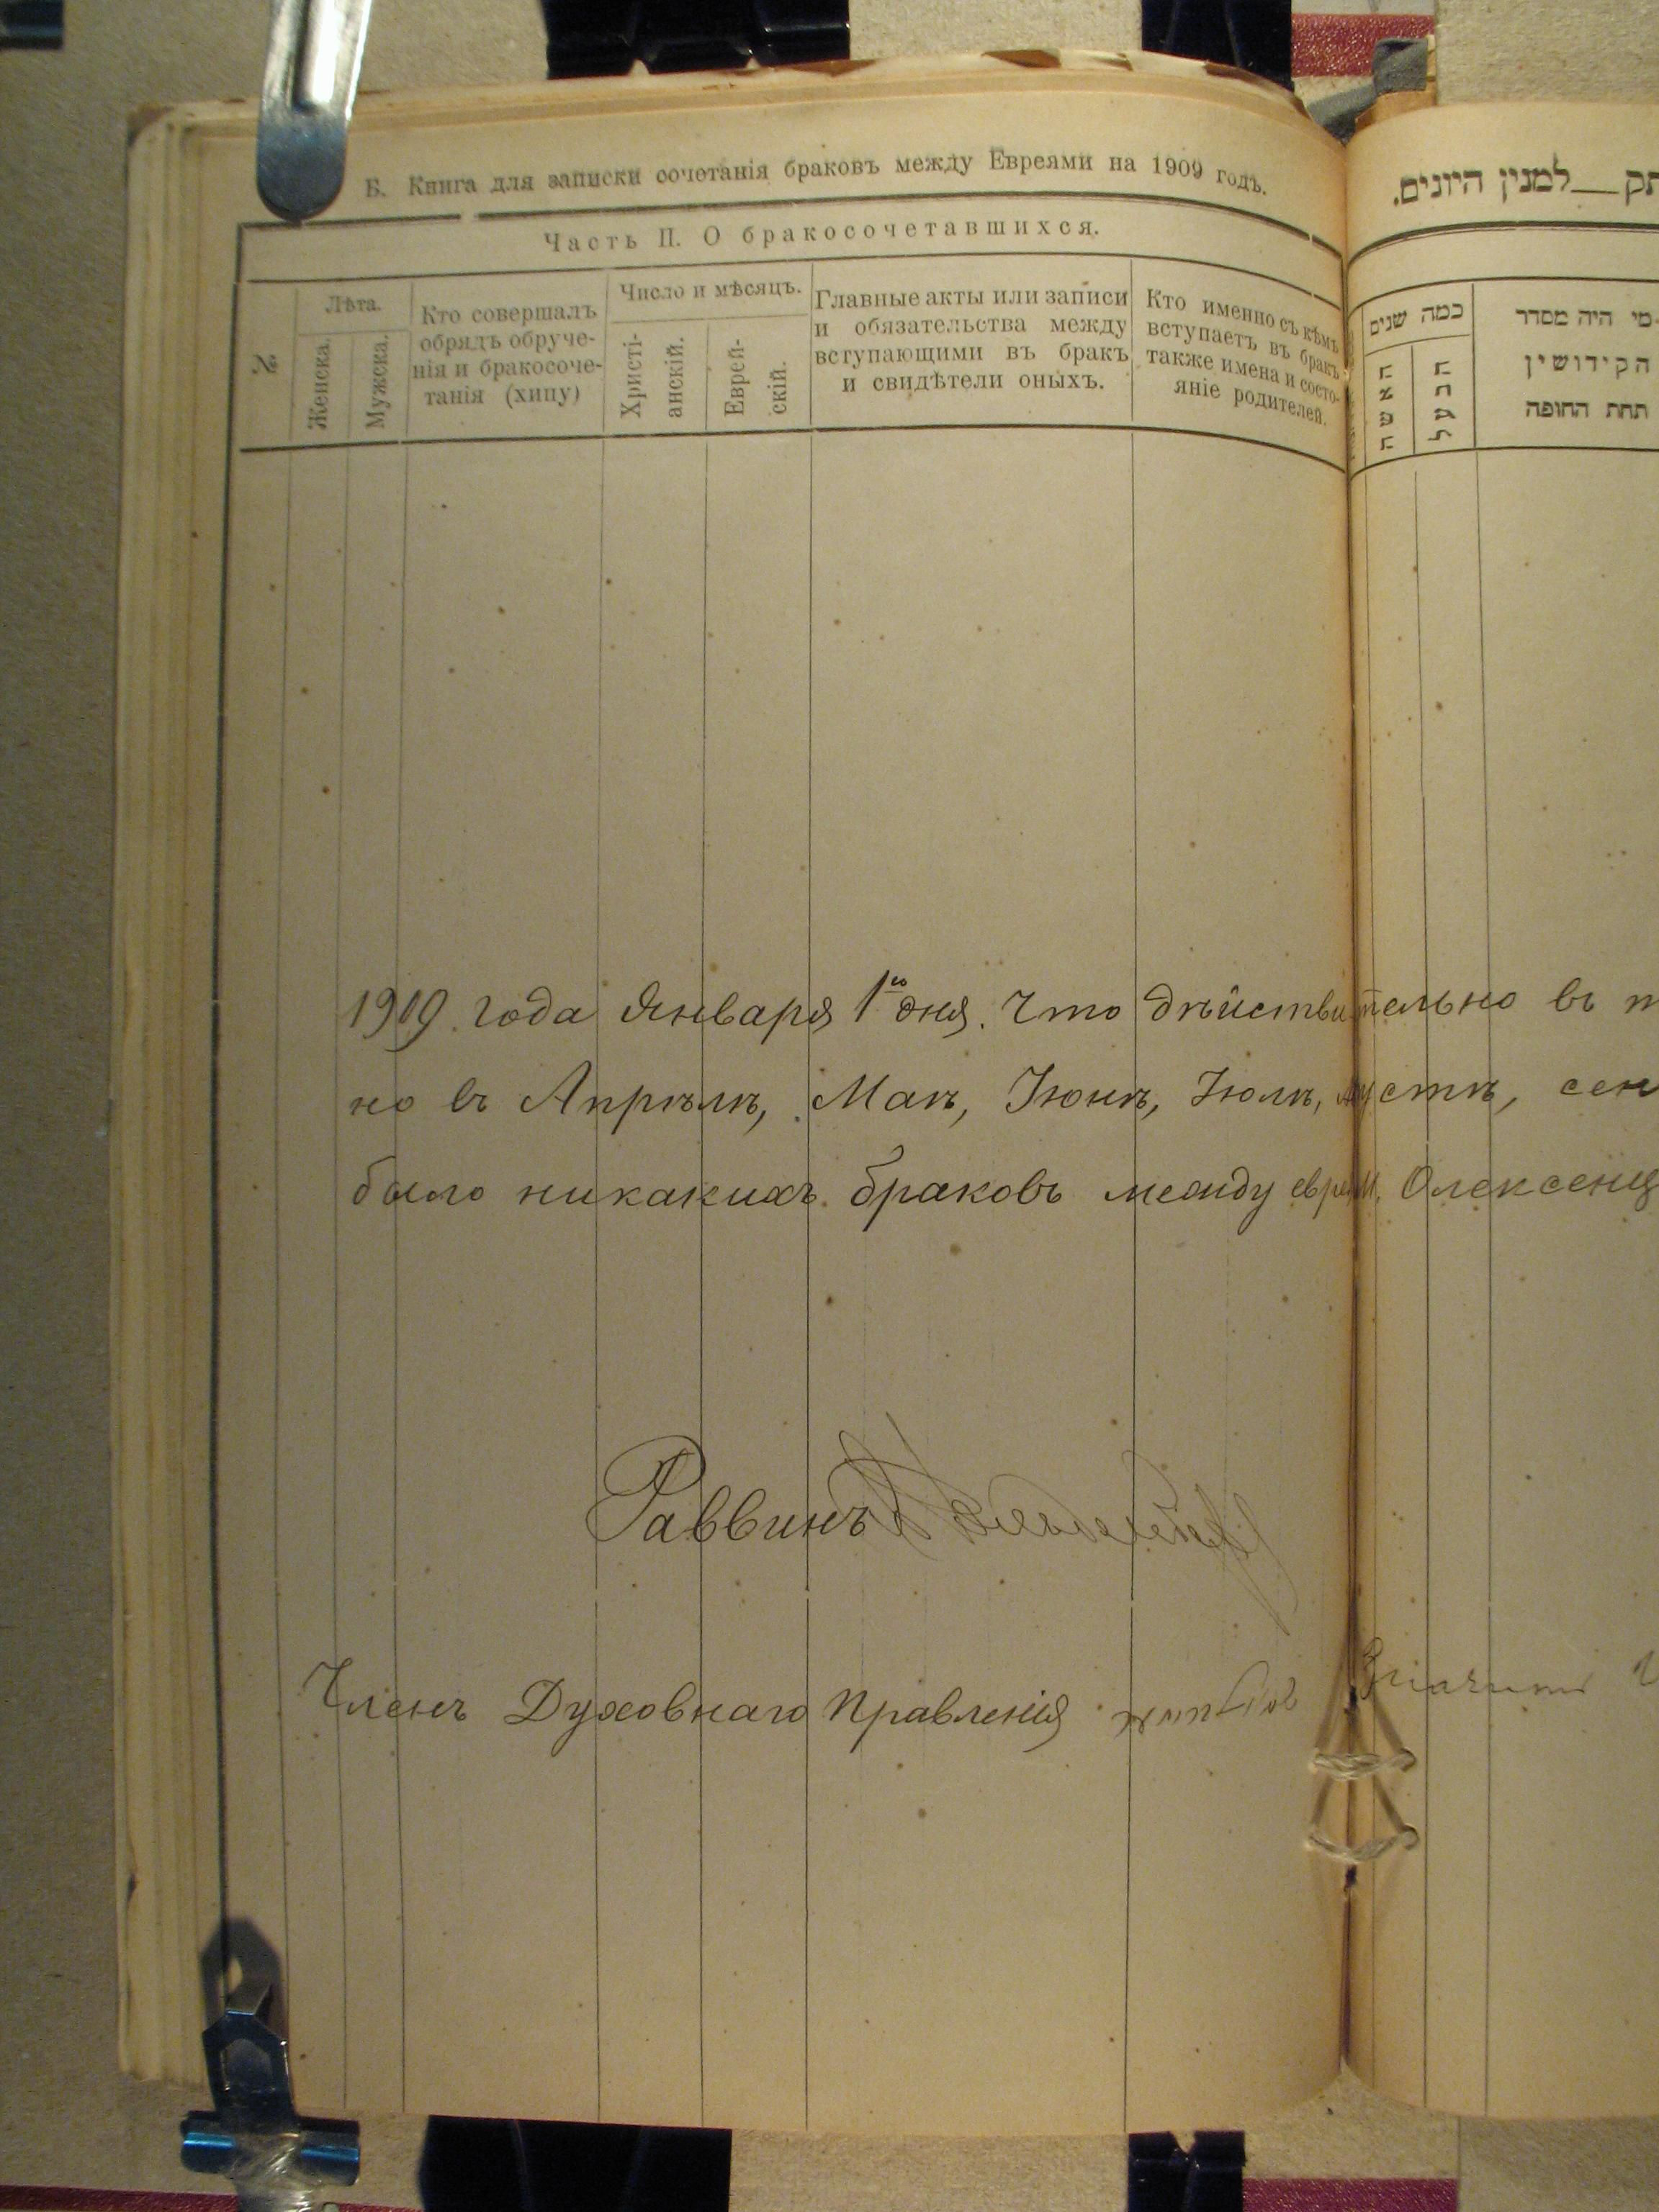 Б. Книга для записки сочетанія браковъ между Евреями на 1909 годъ.
Часть II. О бракосочетавшихся.
№
Лѣта.
Женска.
Мужска.
Кто совершалъ
обрядъ обруче-
нія и бракосоче-
танія (хипу)
Число и мѣсяцъ.
Христі-
анскій.
Еврей-
скій.
Главные акты или записи
и обязательства между
вступающими въ бракъ
и свидѣтели оныхъ.
Кто именно съ кѣмъ
вступаетъ въ бракъ
также имена и состо-
яніе родителей.
למנין היונים.
כמה שנים
האשה
הבעל
מי היה מסדר
הקידושין
תחת החופה
1909 года Января 1го дня. Что дѣйствительно въ
но въ Апрѣлѣ, Маѣ, Іюнѣ, Іюлѣ, Августѣ, сен
было никакихъ браковъ между евреями Олексенц
Раввинъ
Членъ Духовнаго Правленія